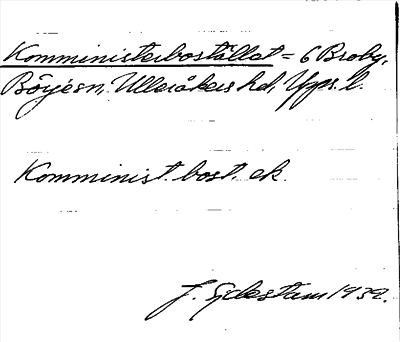 Komministerbostället = 6 Broby,
Börje sn, Ulleråkers hd, Upps. l.
Komminist. bost. ek.
F. Gidestam 1932.